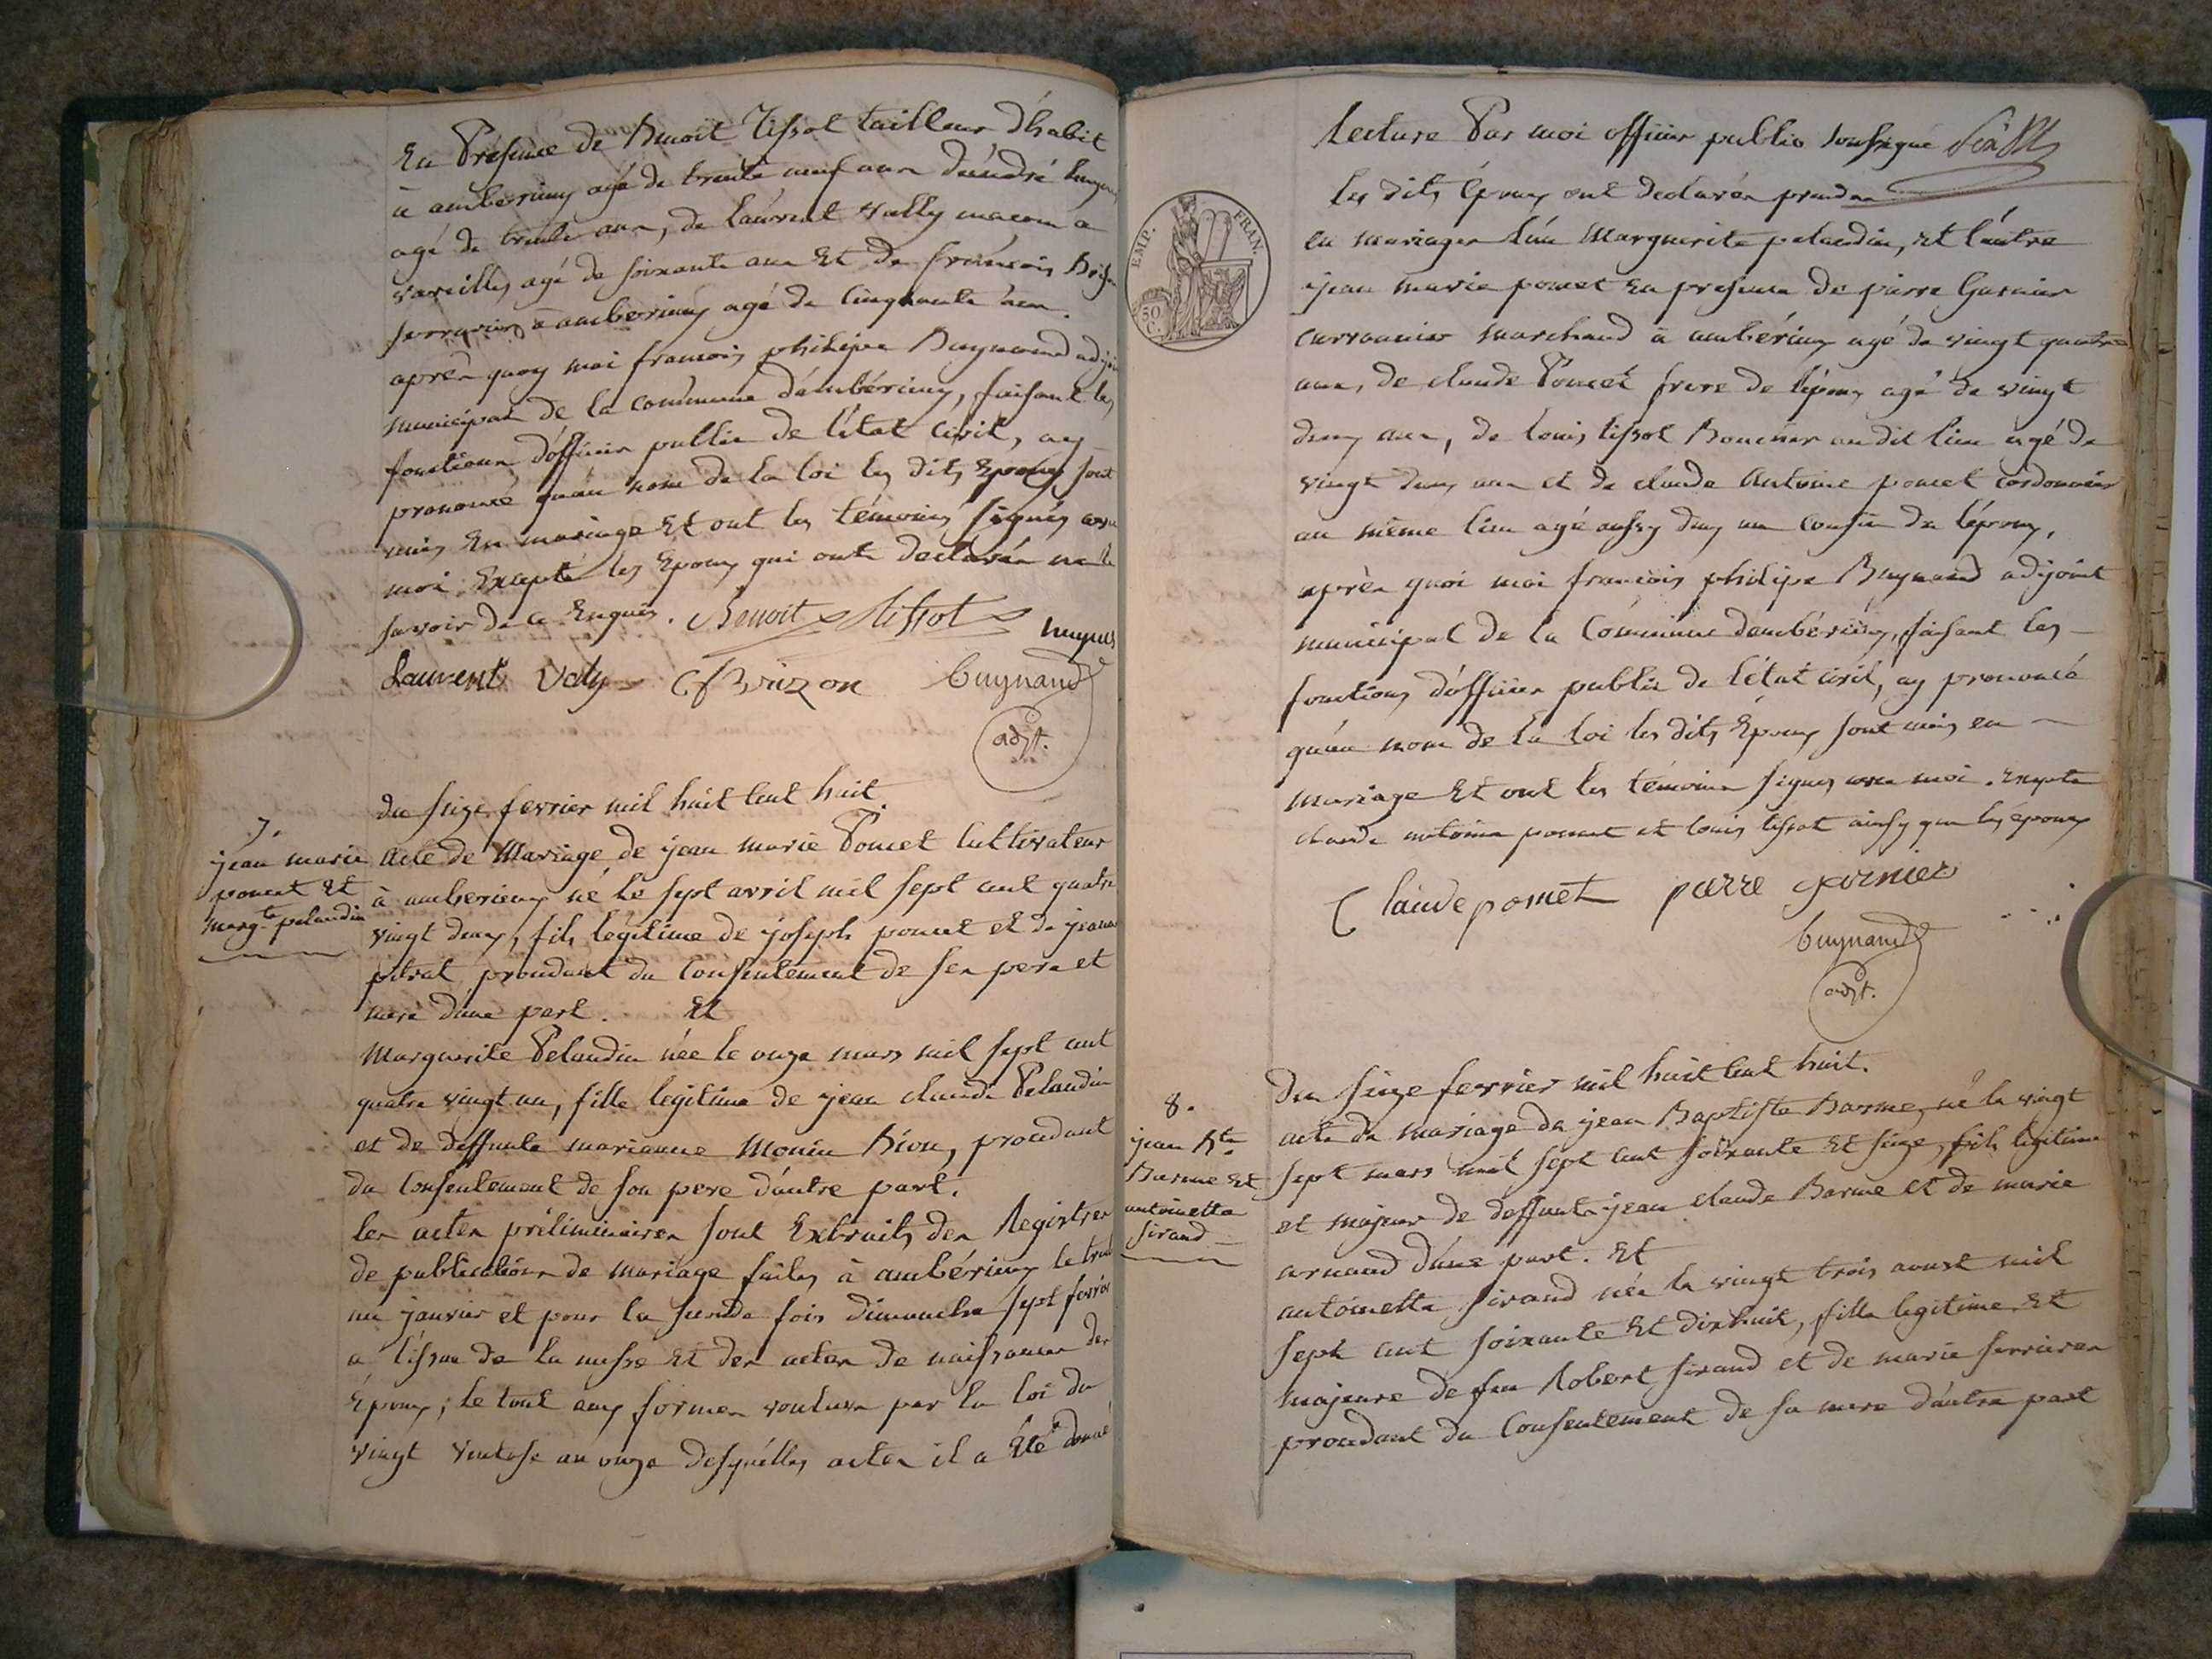 En Présence de Benoit Tissot tailleur d'habit
à amberieux agé de trente neuf ans d'andré hugues
agé de trente ans, de laurent vally macon a
vareilles agé de soixante ans Et de francois
serrurier à amberieux agé de Cinquante ans.
après quoy moi francois philipe Buynand adjoint
municipal de la commune d'ambérieux, faisant les
fonctions d'officier public de l'état Civil, ay
prononcé qu'au nom de la loi les dits Epoux sont
unis En mariage Et ont les témoins signés avec
moi Excepté les Epoux qui ont declarés ne le
savoir de ce Enquis. Benoit tissot hugues
Laurent Valy C f Brizon buynand
adjt.
du seize fevrier mil huit cent huit.
7.
jean marie
poncet Et
Margte pelaudin
acte de Mariage de jean marie Poncet Cultivateur
à amberieux né le sept avril mil sept cent quatre
vingt deux, fils légitime de joseph poncet et de jeanne
pitrat procedant du Consentement de ses pere et
mere d'une part. Et
Marguerite Pelaudin née le onze mars mil sept cent
quatre vingt un, fille legitime de jean claude Pelaudin
et de deffunte marianne Monin Bion, procedant
du Consentement de son pere d'autre part.
les actes préliminaires sont Extraits des Registres
de publications de mariage faites à ambérieux le trente
un janvier et pour la seconde fois dimanche sept fevrier
a l'issue de la messe Et des actes de naissances des
Epoux; le tout aux formes voulues par la loi du
vingt ventose an onze desquelles actes il a Eté donné
EMP. FRAN.
50 C.
lecture Par moi officier public soussigné
les dits Epoux ont declarés prendre
en mariages l'un Marguerite pelaudin, et l'autre
jean marie poncet En presence de pierre Garnier
marchand à ambérieux agé de vingt quatre
ans, de claude Poncet frere de l'epoux agé de vingt
deux ans, de louis tissot Boucher au dit lieu agé de
vingt deux ans et de claude Antoine poncet cordonnier
au même lieu agé aussy deux ans cousin de l'epoux,
après quoi moi francois philipe Buynand adjoint
municipal de la Commune d'ambérieux, faisant les
fonctions d'officier public de l'état civil, ay prononcé
qu'au nom de la loi les dits Epoux sont unis en
mariage Et ont les témoins signes avec moi. Excepte
claude antoine poncet et louis tissot ainsy que les epoux
Claude poncet pierre garnier
buynand
adjt.
Du seize fevrier mil huit cent huit.
8.
jean Bte
Barme Et
antoinette
sirand
acte de mariage de jean Baptiste Barme, né le vingt
sept mars mil sept cent soixante Et seize, fils legitime
et majeur de deffunte jean claude Barme et de marie
arnaud d'une part. Et
antoinette sirand née le vingt trois aoust mil
sept cent soixante Et dixhuit, fille legitime Et
majeure de feu Robert sirand et de marie
procedant du Consentement de sa mere d'autre part